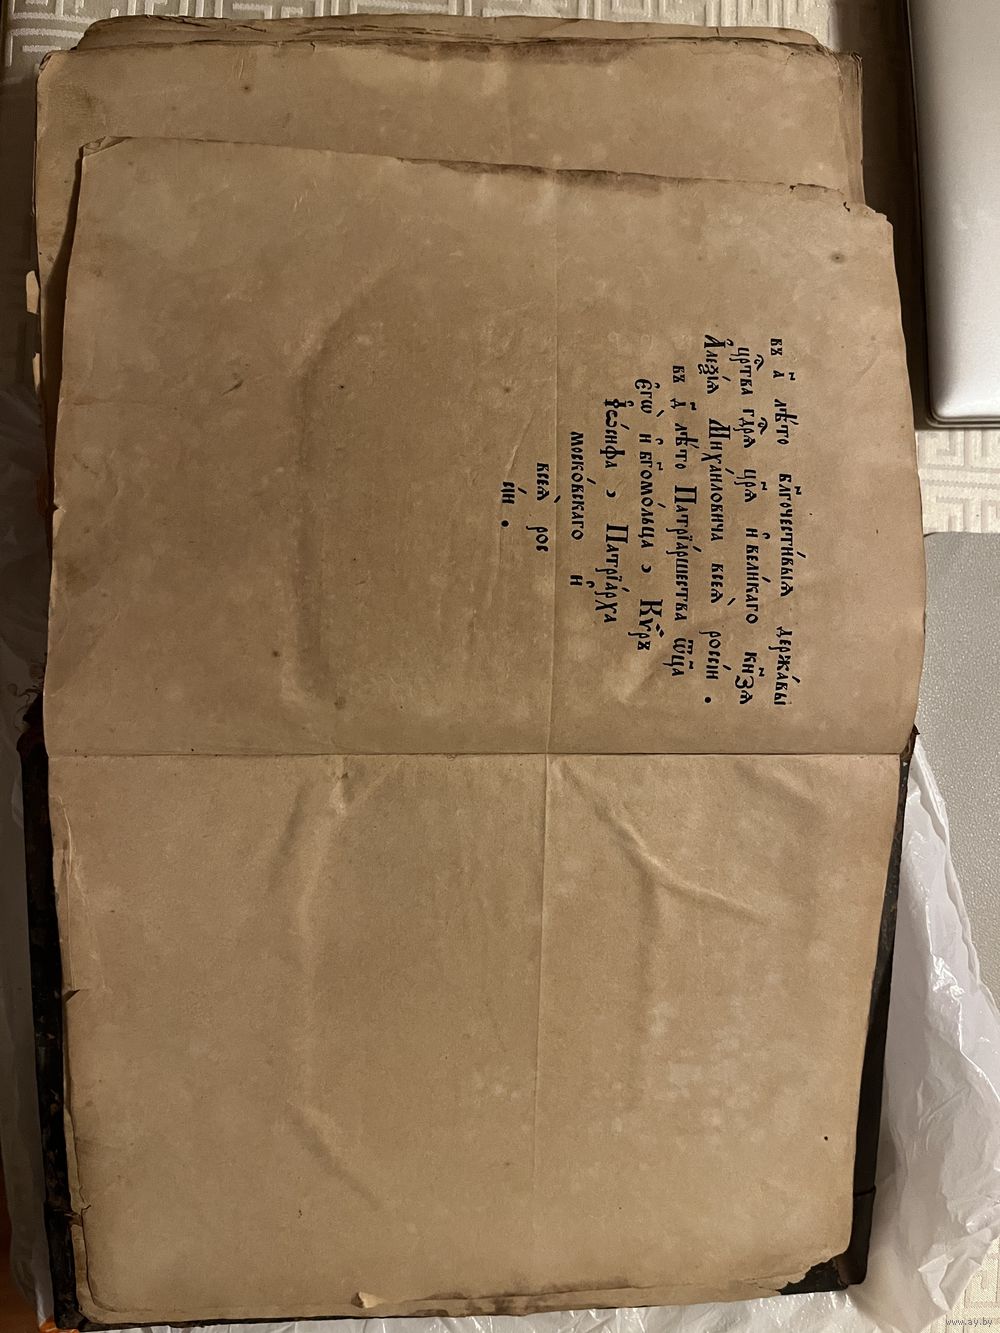 въ д҃ лѣ́то бл҃гочести́выѧ держа́вы
црⷭ҇тва гдⷭ҇рѧ цр҃ѧ и҆ вели́каго кн҃зѧ
А҆леѯі́ѧ Миха́иловича всеѧ̀ росси́и .
въ д҃ лѣ́то Патрїа́ршества ѻ҆ц҃а
є҆гѡ̀ и҆ бг҃омо́льца , Кѵ̈ръ
і҆ѡ́сифа , Патрїа́рха
моско́вскаго и҆
всеѧ̀ рос
сі́и .
www.ay.by